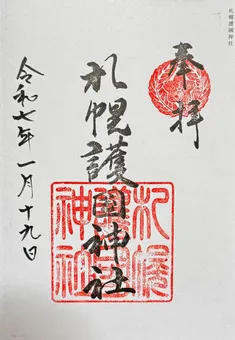 札幌護國神社
奉拝
札幌護国神社
札幌護国神社
令和七年一月十九日